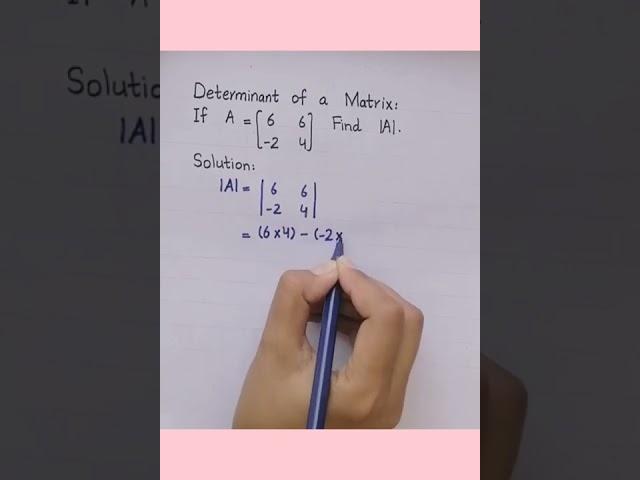 Determinant of a Matrix:
If A = [6 6
-2 4] Find |A|.
Solution:
|A| = |6 6|
|-2 4|
= (6×4) - (-2×